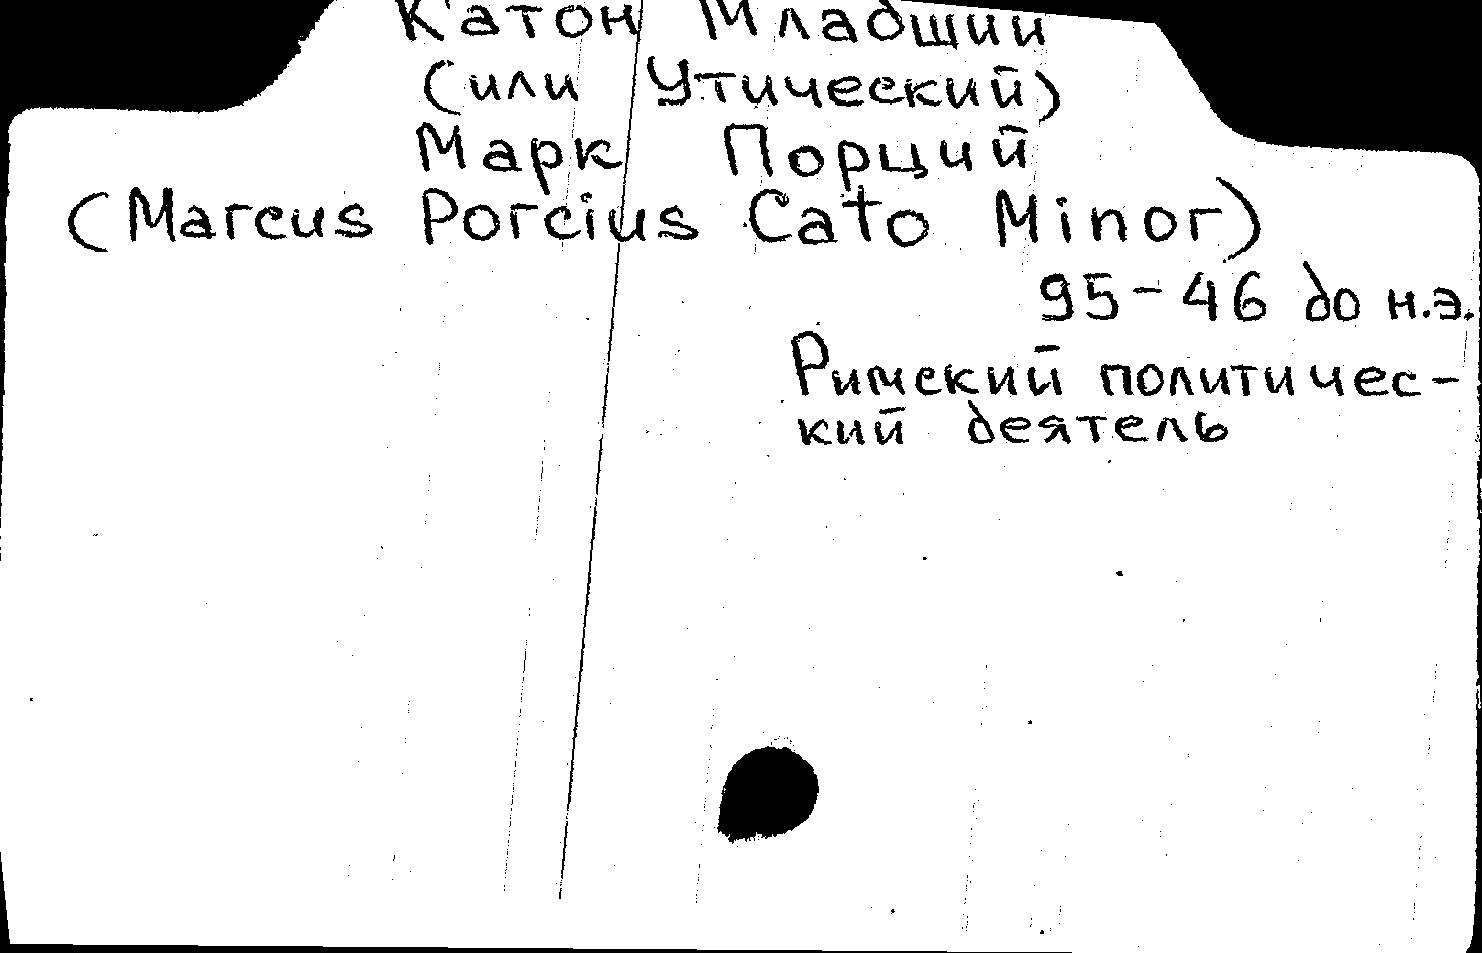 Катон Младший
(или Утический)
Марк Порций
(Marcus Porcius Cato Minor)
95-46 до н.э.
Римский политичес-
кий деятель